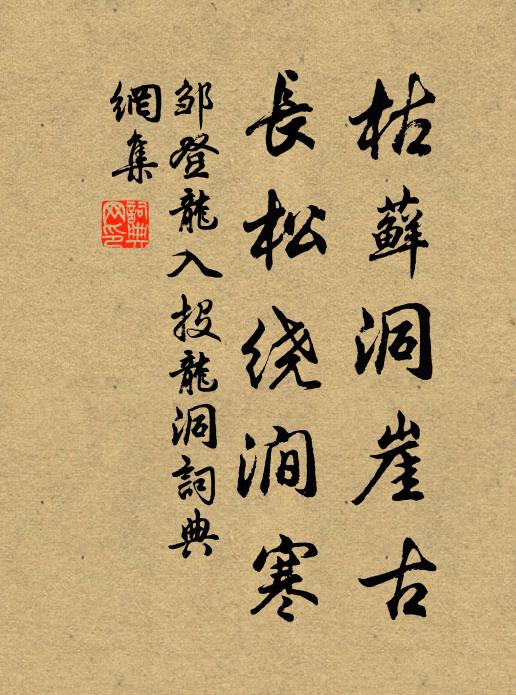 枯蘚洞崖古
長松绕澗寒
邹登龍入投龍洞詞典
網集
詞典
网印